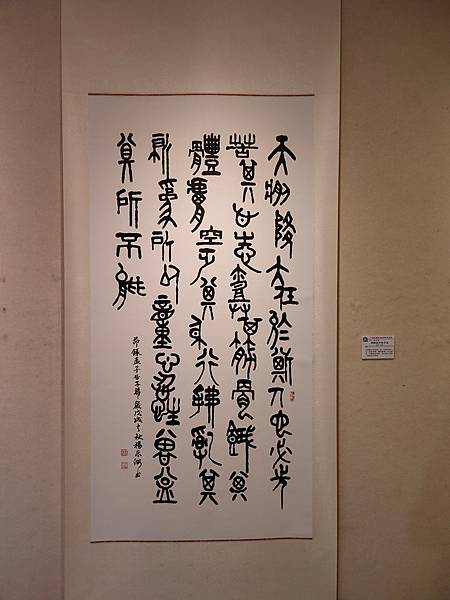 天將降大任於斯人也必先
苦其心志勞其筋骨餓其
體膚空乏其身行拂亂其
所為所以動心忍性曾益
其所不能
節錄孟子告子 歲戊戌之秋楊